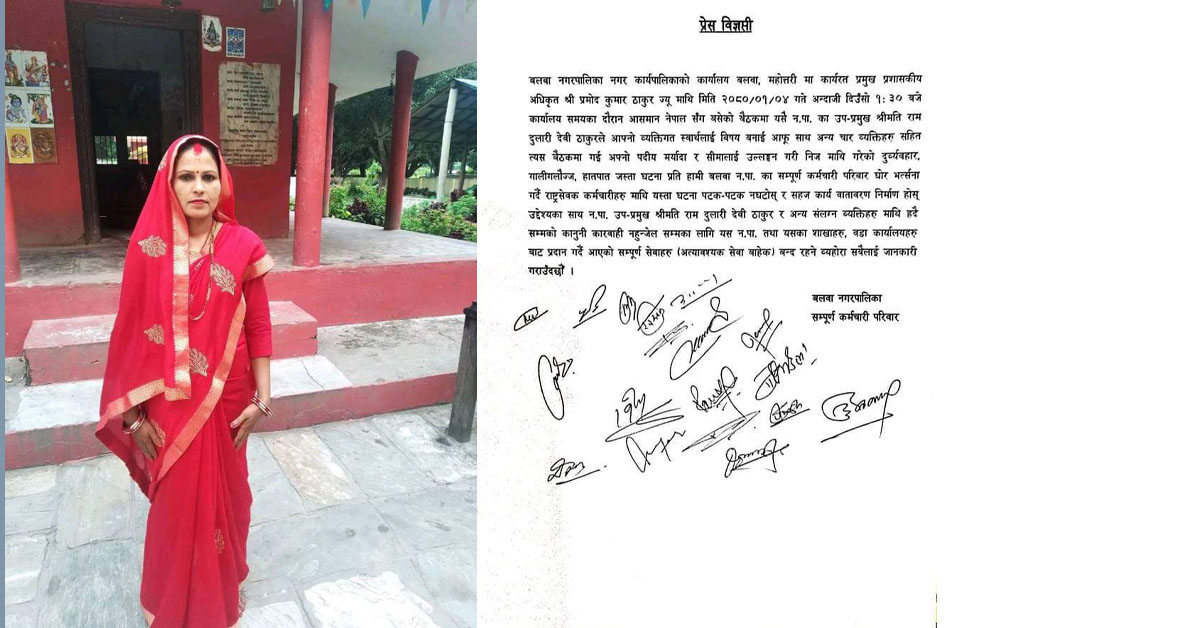 प्रेस विज्ञप्ती
बलवा नगरपालिका नगर कार्यपालिकाको कार्यालय बलवा, महोत्तरी मा कार्यरत प्रमुख प्रशासकीय
अधिकृत श्री प्रमोद कुमार ठाकुर ज्यू माथि मिति २०८०/०१/०४ गते अन्दाजी दिउँसो १:३० बजे
कार्यालय समयका दौरान आसमान नेपाल सँग बसेको बैठकमा यसै न.पा. का उप-प्रमुख श्रीमति राम
दुलारी देवी ठाकुरले आफ्नो व्यक्तिगत स्वार्थलाई विषय बनाई आफू साथ अन्य चार व्यक्तिहरु सहित
त्यस बैठकमा गई अफ्नो पदीय मर्यादा र सीमालाई उल्लङ्घन गरी निज माथि गरेको दुर्व्यवहार,
गालीगलौज्ज, हातपात जस्ता घटना प्रति हामी बलवा न.पा. का सम्पूर्ण कर्मचारी परिवार घोर भर्त्सना
गर्दै राष्ट्रसेवक कर्मचारीहरु माथि यस्ता घटना पटक-पटक नघटोस् र सहज कार्य वातावरण निर्माण होस्
उद्देश्यका साथ न.पा. उप-प्रमुख श्रीमति राम दुलारी देवी ठाकुर र अन्य संलग्न व्यक्तिहरु माथि हदै
सम्मको कानुनी कारबाही नहुन्जेल सम्मका लागि यस न.पा. तथा यसका शाखाहरु, वडा कार्यालयहरु
बाट प्रदान गर्दै आएको सम्पूर्ण सेवाहरु (अत्यावश्यक सेवा बाहेक) बन्द रहने व्यहोरा सवैलाई जानकारी
गराउँदछौं ।
बलवा नगरपालिका
सम्पूर्ण कर्मचारी परिवार